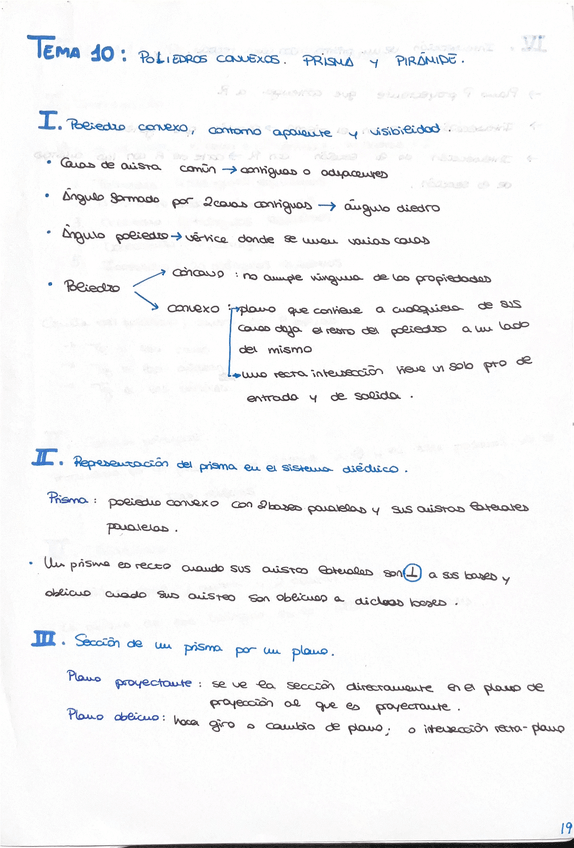 TEMA 10: POLIEDROS CONVEXOS. PRISMA Y PIRÁMIDE.
I. Poliedro convexo, contorno aparente y visibilidad.
• Caras de arista común → contiguas o adyacentes
• Ángulo formado por 2 caras contiguas → ángulo diedro
• Ángulo poliedro → vértice donde se unen varias caras
• Poliedro → cóncavo: no cumple ninguna de las propiedades
→ convexo: → plano que contiene a cualquiera de sus
caras deja el resto del poliedro a un lado
del mismo
→ una recta intersección tiene un solo pto de
entrada y de salida.
II. Representación del prisma en el sistema diédrico.
Prisma: poliedro convexo con 2 bases paralelas y sus aristas laterales
paralelas.
• Un prisma es recto cuando sus aristas laterales son ⊥ a sus bases y
oblicuo cuado sus aristas son oblicuas a dichas bases.
III. Sección de un prisma por un plano.
Plano proyectante: se ve la sección directamente en el plano de
proyección al que es proyectante.
Plano oblicuo: hace giro o cambio de plano; o intersección recta-plano
19